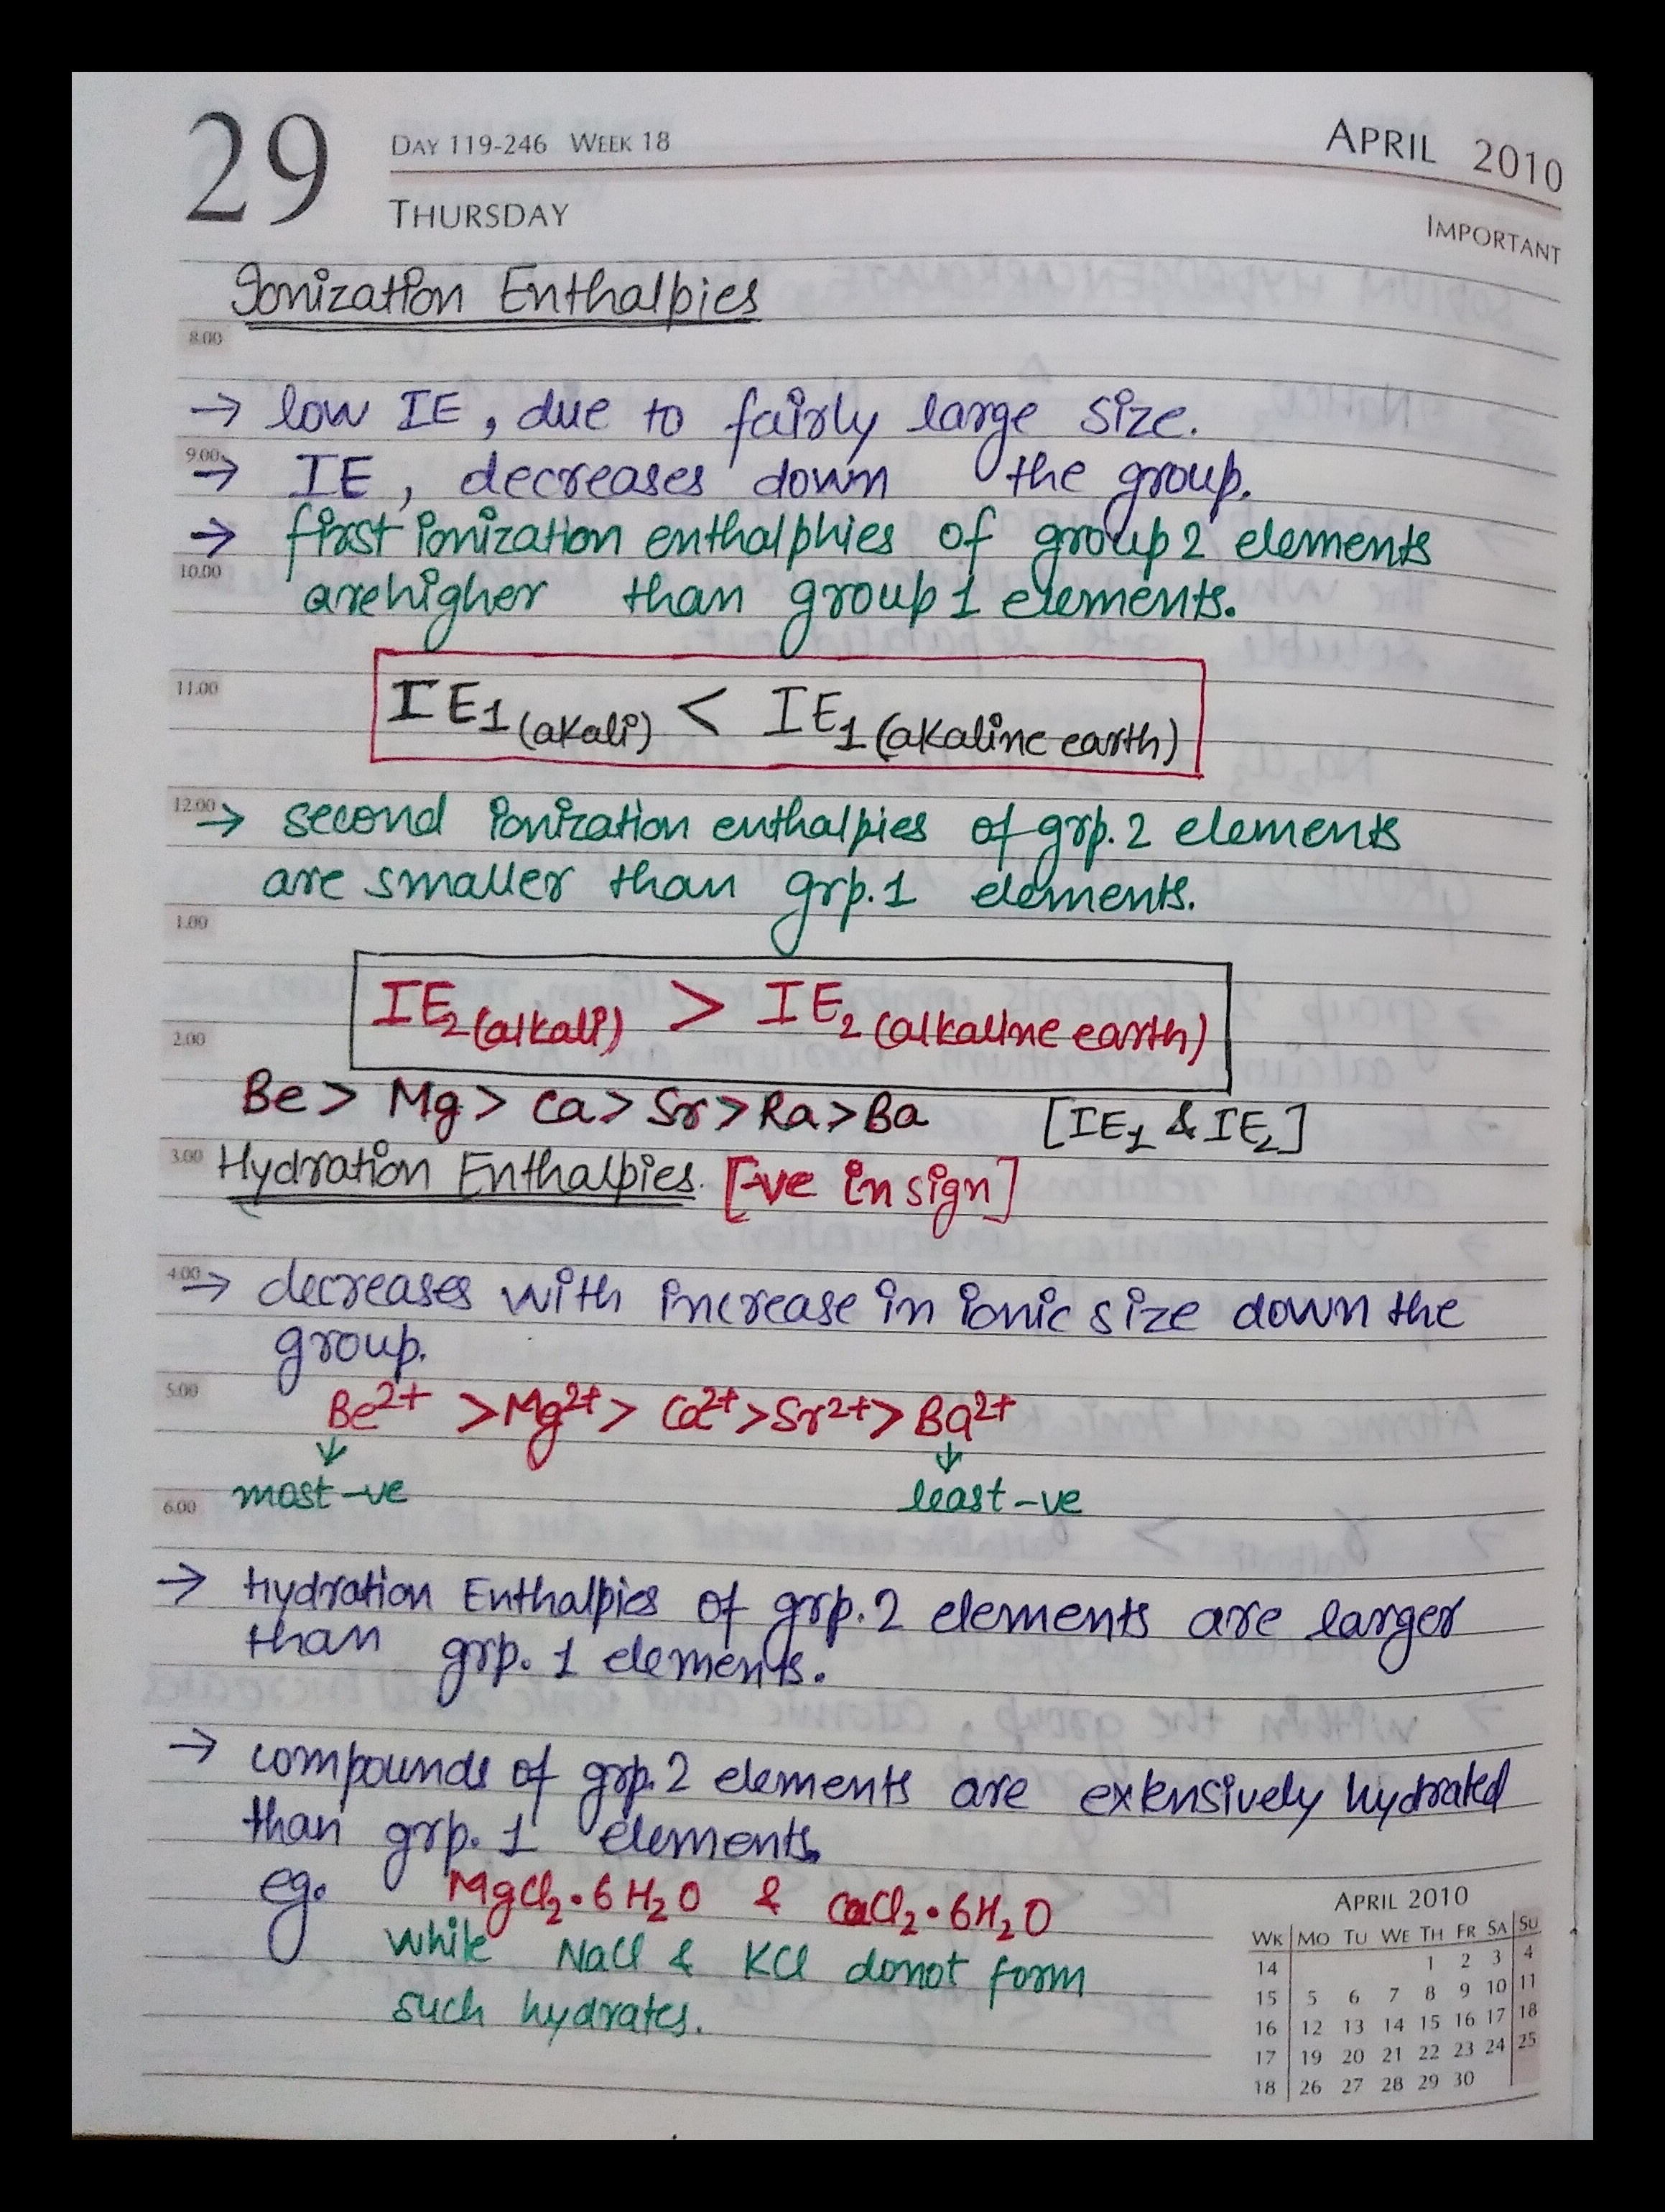 29
DAY 119-246 WEEK 18
APRIL 2010
THURSDAY
IMPORTANT
Ionization Enthalpies
8.00
→ low IE, due to fairly large size.
9.00
→ IE, decreases down the group.
→ first ionization enthalphies of group 2 elements
10.00
are higher than group 1 elements.
11.00
IE1 (akali) < IE1 (akaline earth)
12.00
→ second ionization enthalpies of grp. 2 elements
are smaller than grp. 1 elements.
1.00
IE2 (alkali) > IE2 (alkaline earth)
2.00
Be > Mg > Ca > Sr > Ra > Ba [IE1 & IE2]
3.00
Hydration Enthalpies. [-ve in sign]
4.00
→ decreases with increase in ionic size down the
group.
5.00
Be²⁺ > Mg²⁺ > Ca²⁺ > Sr²⁺ > Ba²⁺
↓ ↓
most -ve least -ve
6.00
→ Hydration Enthalpies of grp. 2 elements are larger
than grp. 1 elements.
→ compounds of grp. 2 elements are extensively hydrated
than grp. 1 elements.
eg. MgCl₂·6H₂O & CaCl₂·6H₂O
while NaCl & KCl donot form
such hydrates.
APRIL 2010
WK MO TU WE TH FR SA SU
14 1 2 3 4
15 5 6 7 8 9 10 11
16 12 13 14 15 16 17 18
17 19 20 21 22 23 24 25
18 26 27 28 29 30